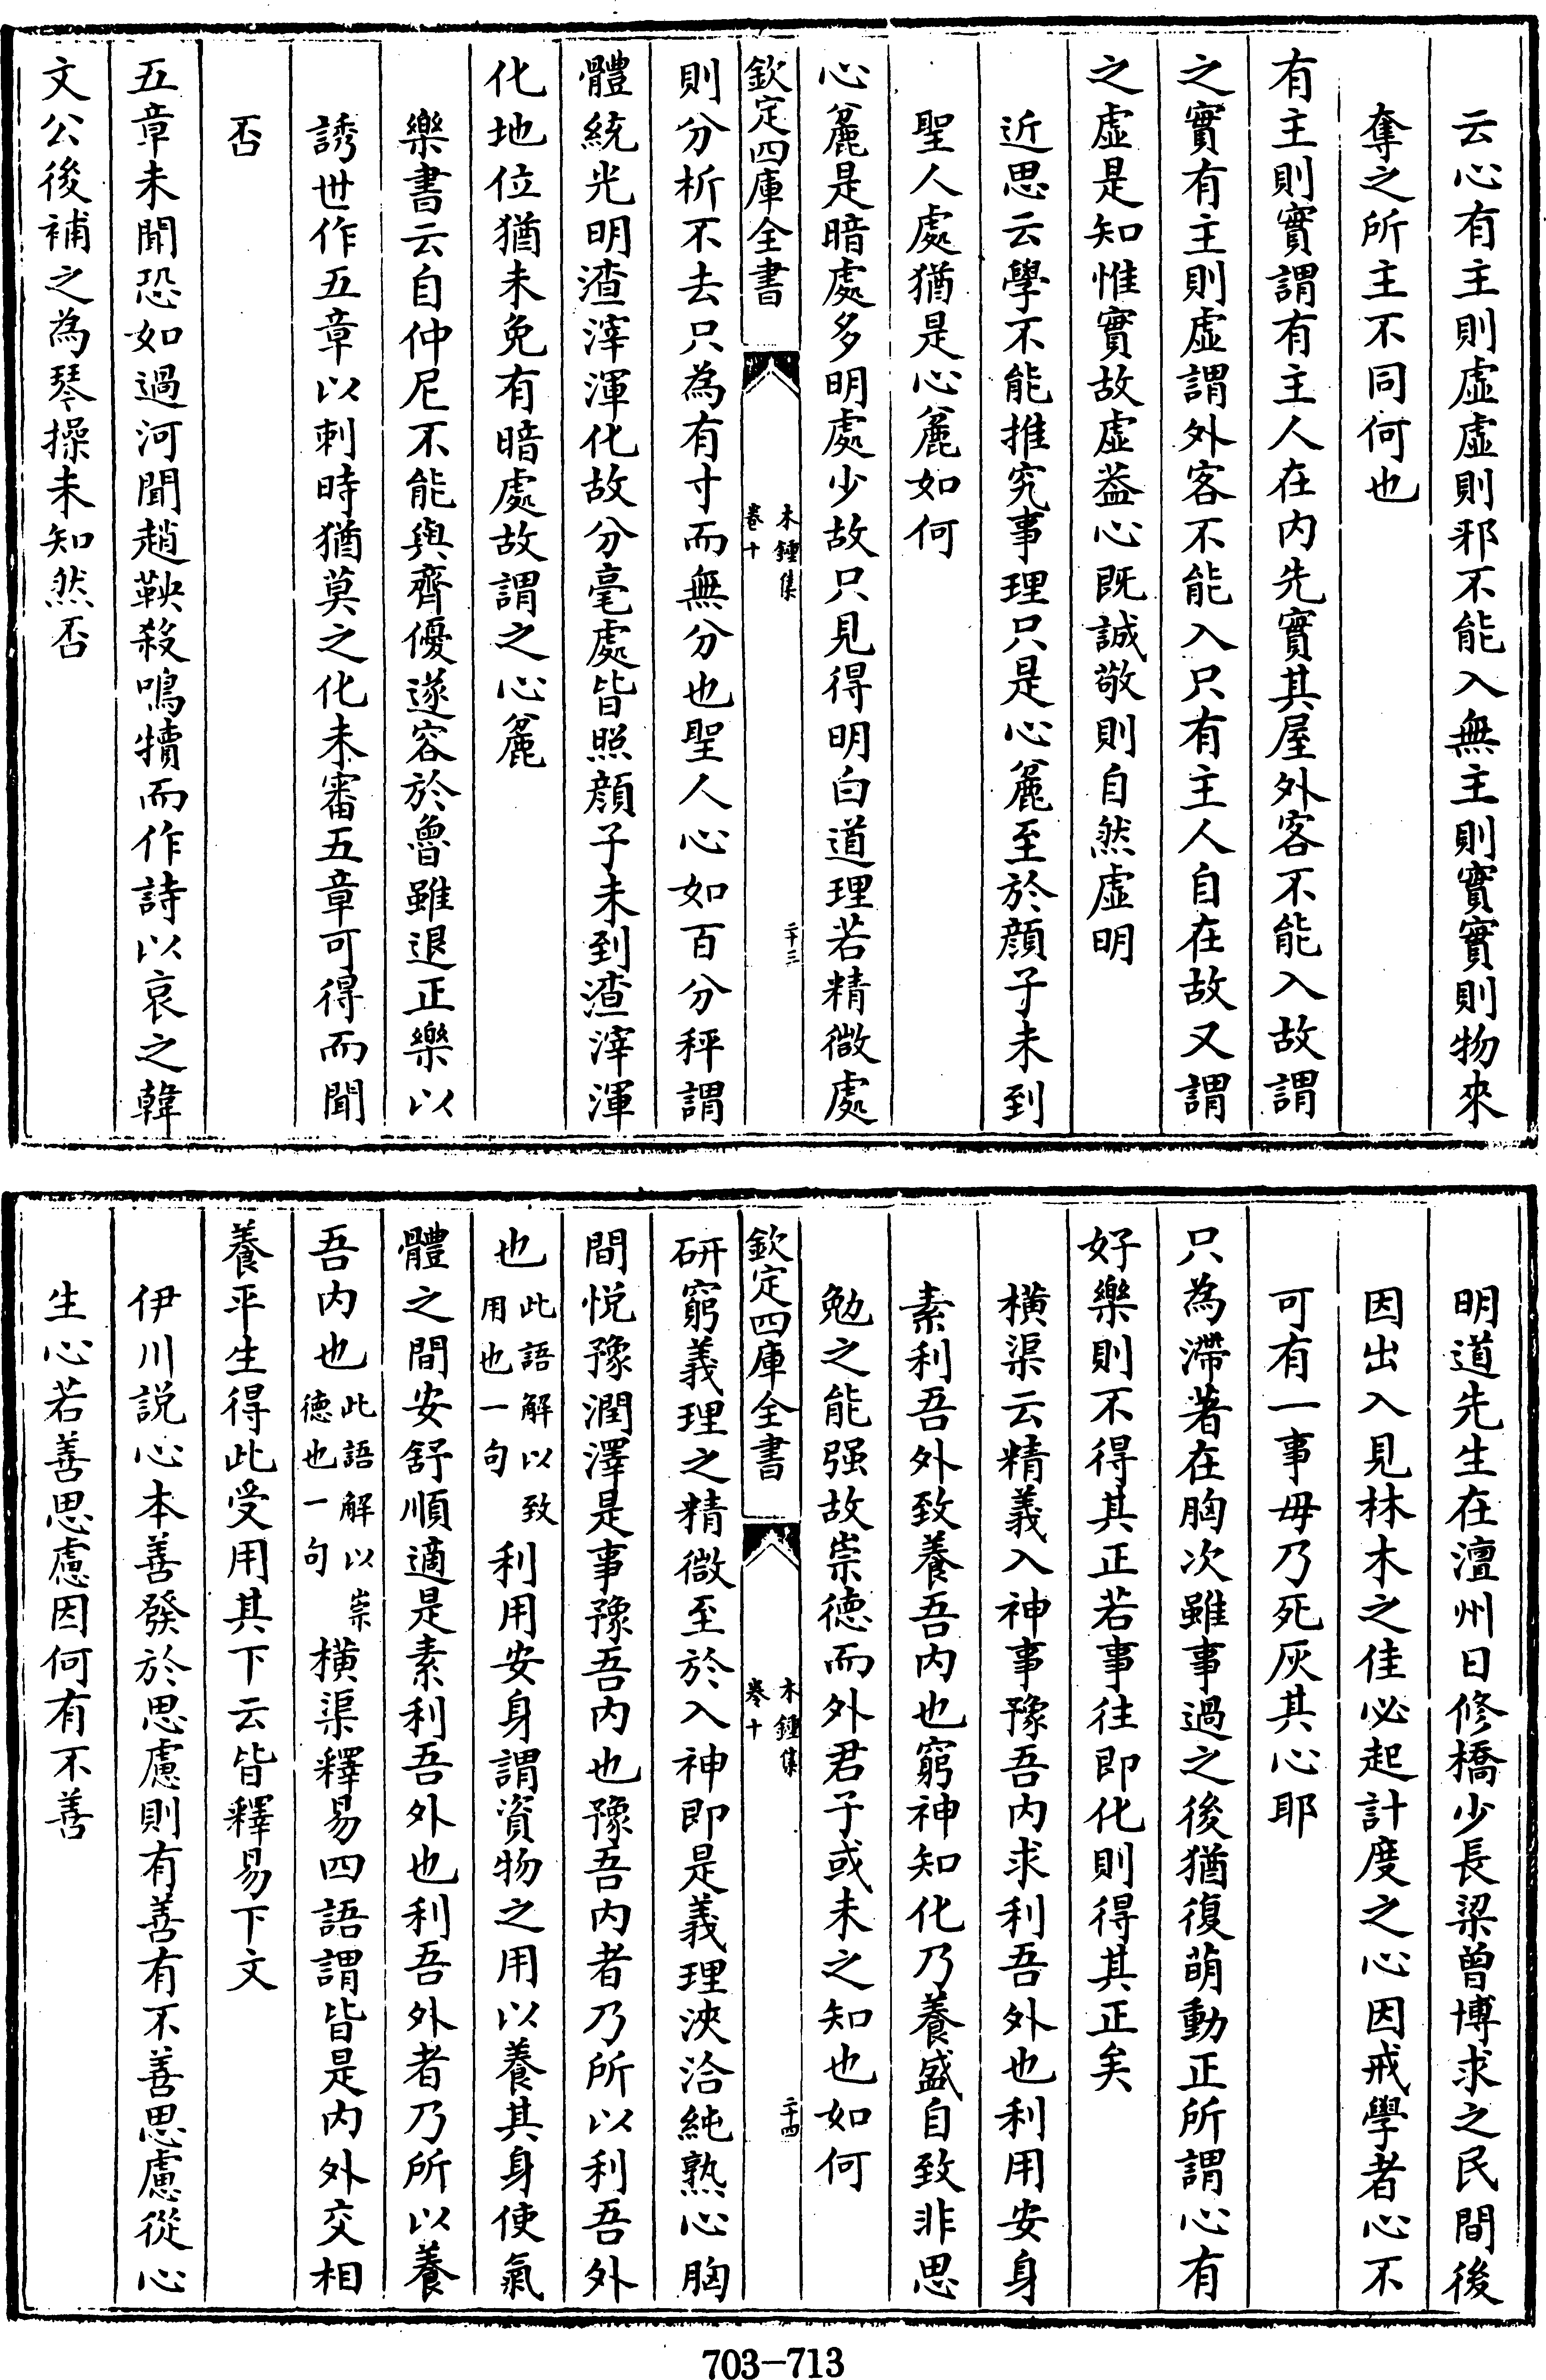 云心有主則虛虛則邪不能入無主則實實則物來
奪之所主不同何也
有主則實謂有主人在内先實其屋外客不能入故謂
之實有主則虛謂外客不能入只有主人自在故又謂
之虛是知惟實故虛葢心既誠敬則自然虛明
近思云學不能推究事理只是心麄至於顔子未到
聖人處猶是心麄如何
心麄是暗處多明處少故只見得明白道理若精微處
欽定四庫全書
木鍾集
卷十
二十三
則分析不去只為有寸而無分也聖人心如百分秤謂
體統光明渣滓渾化故分毫處皆照顔子未到渣滓渾
化地位猶未免有暗處故謂之心麄
樂書云自仲尼不能與齊優遂容於魯雖退正樂以
誘世作五章以刺時猶莫之化未審五章可得而聞
否
五章未聞恐如過河聞趙鞅殺鳴犢而作詩以哀之韓
文公後補之為琴操未知然否
明道先生在澶州日修橋少長梁曾博求之民間後
因出入見林木之佳必起計度之心因戒學者心不
可有一事毋乃死灰其心耶
只為滯著在胸次雖事過之後猶復萌動正所謂心有
好樂則不得其正若事往即化則得其正矣
横渠云精義入神事豫吾内求利吾外也利用安身
素利吾外致養吾内也窮神知化乃養盛自致非思
勉之能强故崇德而外君子或未之知也如何
欽定四庫全書
木鍾集
卷十
二十四
研窮義理之精微至於入神即是義理浹洽純熟心胸
間悅豫潤澤是事豫吾内也豫吾内者乃所以利吾外
也此語解以致用也一句利用安身謂資物之用以養其身使氣
體之間安舒順適是素利吾外也利吾外者乃所以養
吾内也此語解以崇德也一句横渠釋易四語謂皆是内外交相
養平生得此受用其下云皆釋易下文
伊川説心本善發於思慮則有善有不善思慮從心
生心若善思慮因何有不善
703-713